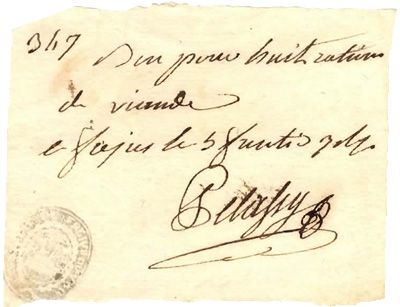 347 Bon pour huit rations
de viande
a frejus le 5 fructid 7
Pelassy